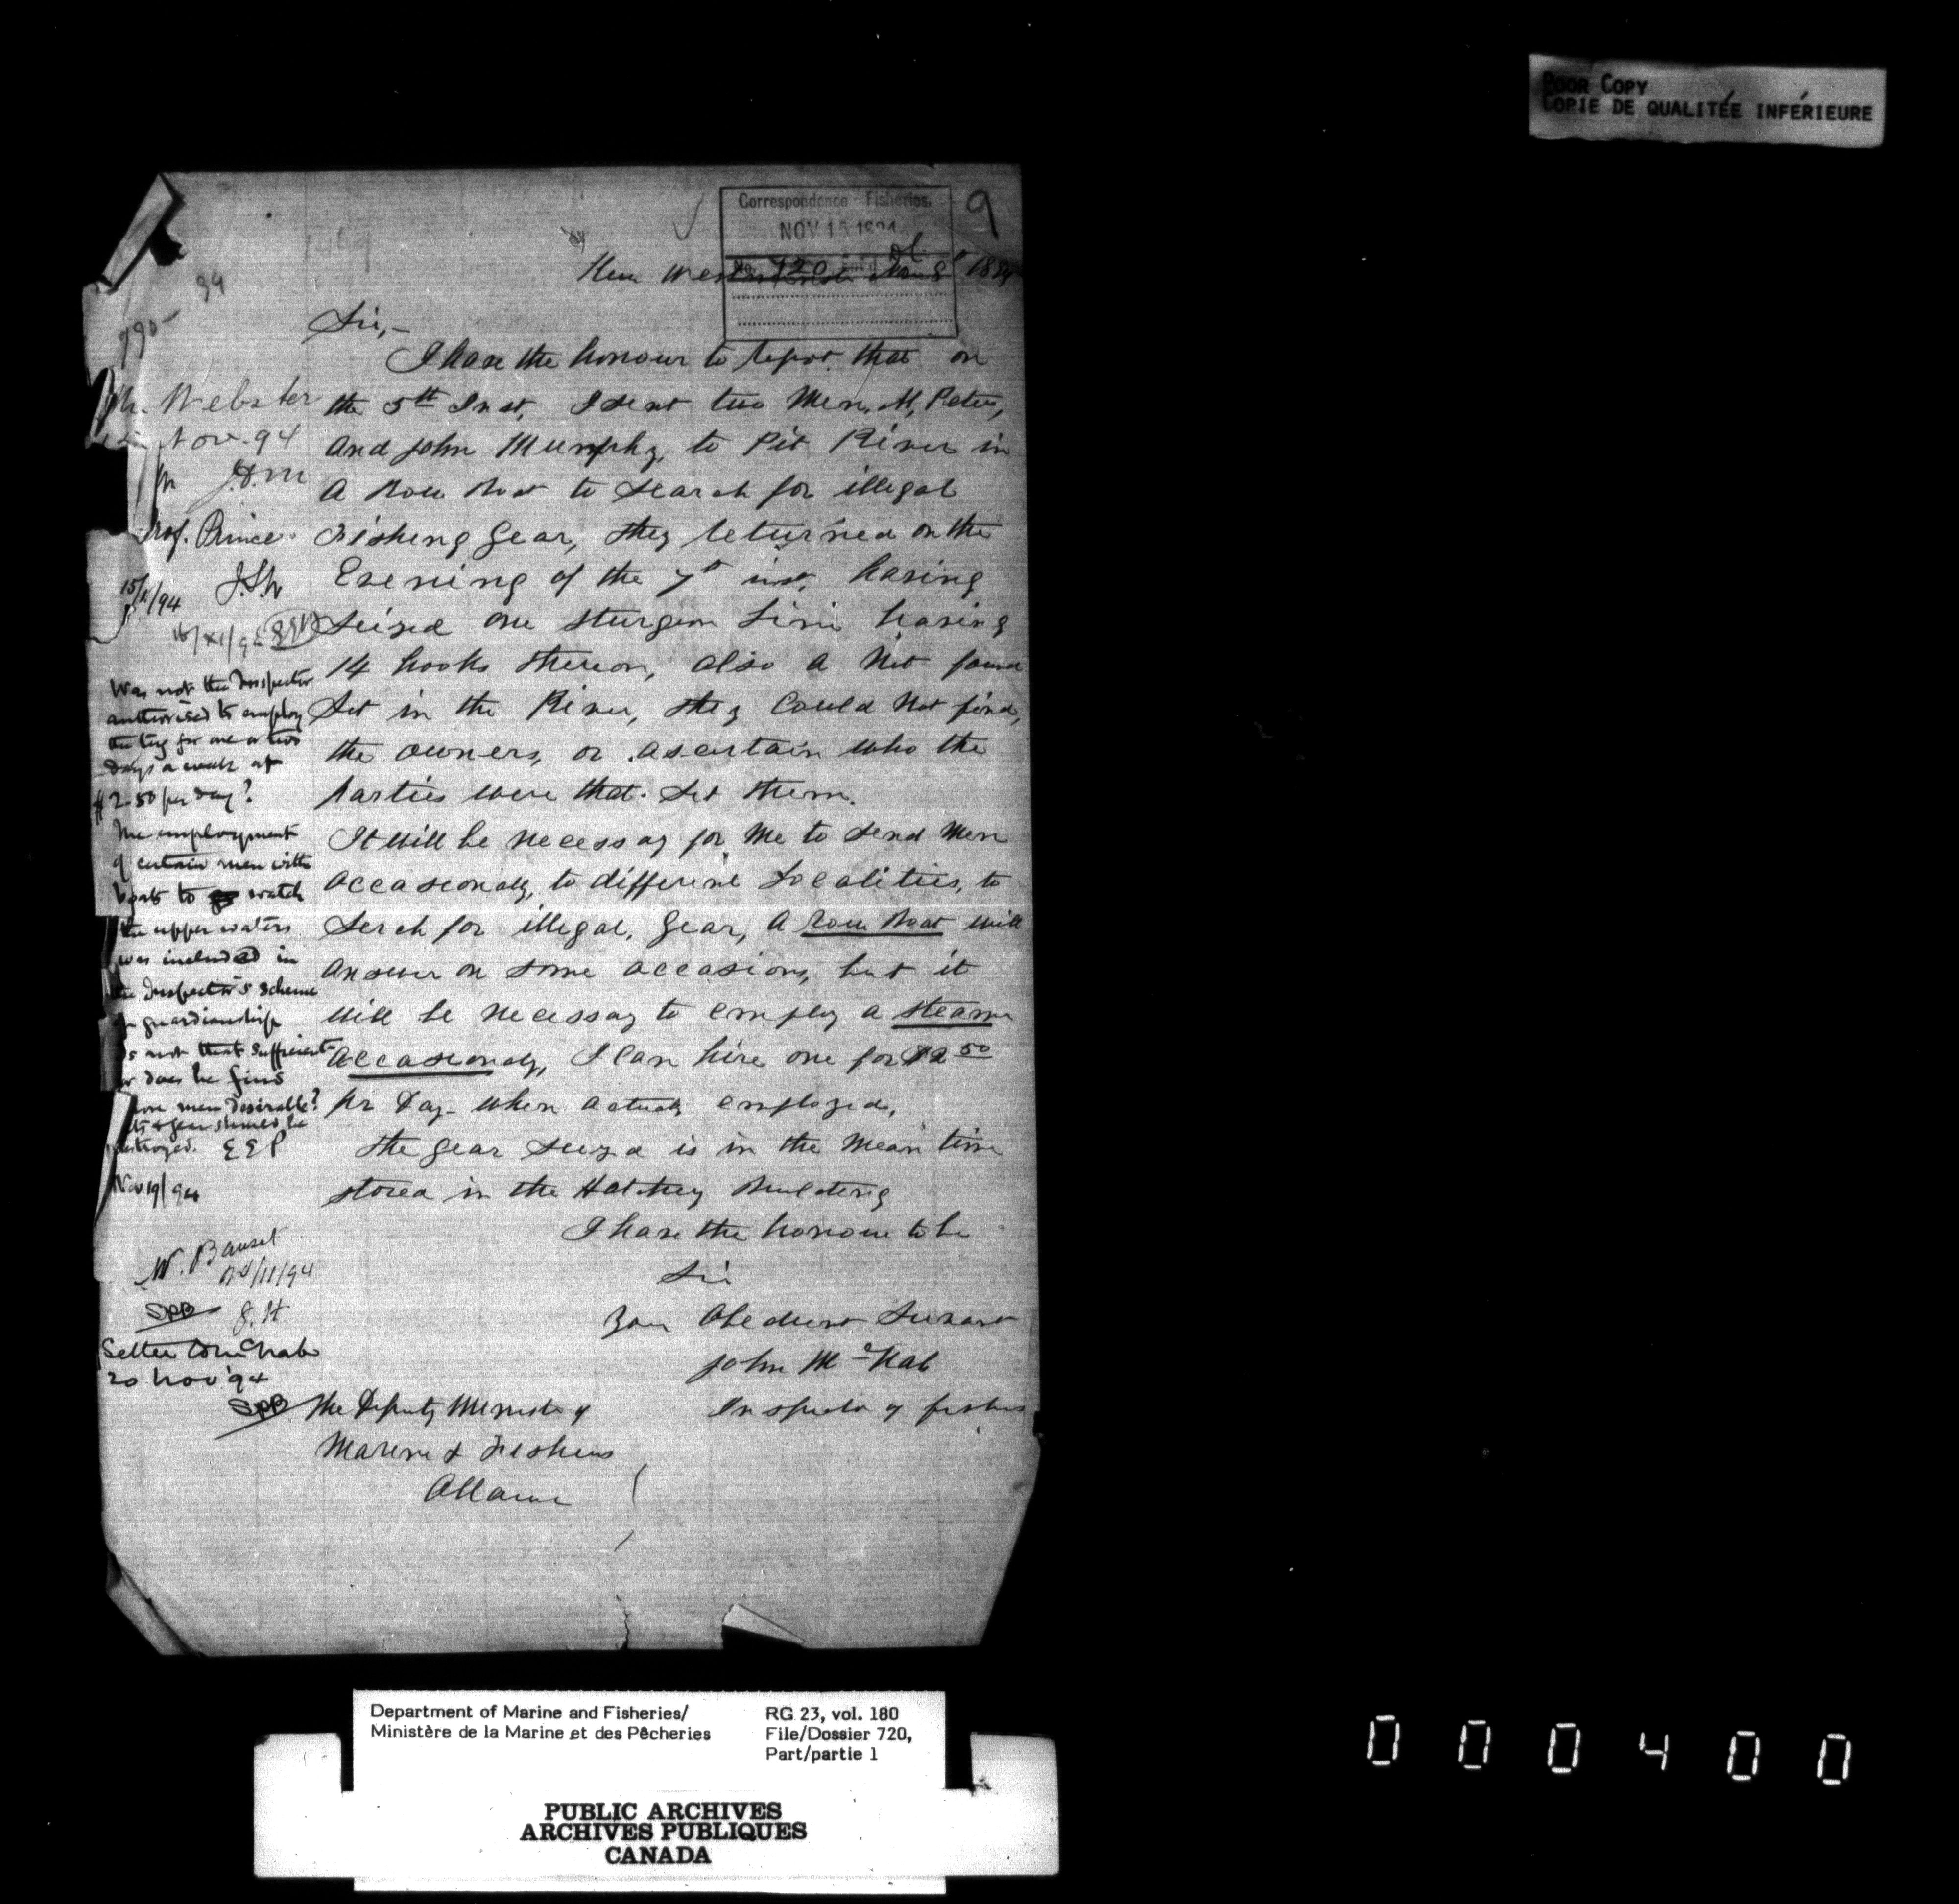 POOR COPY
COPIE DE QUALITÉE INFÉRIEURE
Correspondence - Fisheries.
NOV 15 1894
No. 720
9
New Westminster Nov 8th 1894
Sir,-
I have the honour to report that on
the 5th Inst, I sent two Men, M, Peters,
and John Murphy, to Pit River in
a Row Boat to Search for illegal
Fishing Gear, they returned on the
Evening of the 7th inst, having
Seized one Sturgeon Line having
14 hooks thereon, also a Net found
Set in the River, they Could Not find,
the owners, or ascertain who the
parties were that Set them.
It will be necessary for Me to Send Men
occasionaly, to different Localities, to
Serch for illegal, Gear, A Row Boat will
answer on some occasions, but it
will be necessary to employ a Steamer
occasionaly, I Can hire one for $2 50
pr Day when actualy employed,
the gear Seized is in the Mean time
stored in the Hatchery Building
I have the honour to be
Sir
Your Obedient Servant
John McNab
Inspector of fisheries
The Deputy Minister of
Marine & Fisheries
Ottawa
94
790-
Mr. Webster
Nov. 94
J.D.M
Prof. Prince.
15/11/94
16/XI/94
Was not the Inspector
authorised to employ
the tug for one or two
days a week at
$2.50 per day?
The employment
of certain men with
boats to watch
the upper waters
was included in
the Inspector's scheme
of guardianship
Is not that sufficient
or does he find
more men desirable?
Nets & gear should be
destroyed. EEP
Nov 19/94
W. Bauset
20/11/94
SPB J.H
Letter to McNab
20 Nov '94
SPB
Department of Marine and Fisheries/
Ministère de la Marine et des Pêcheries
RG 23, vol. 180
File/Dossier 720,
Part/partie 1
PUBLIC ARCHIVES
ARCHIVES PUBLIQUES
CANADA
000400